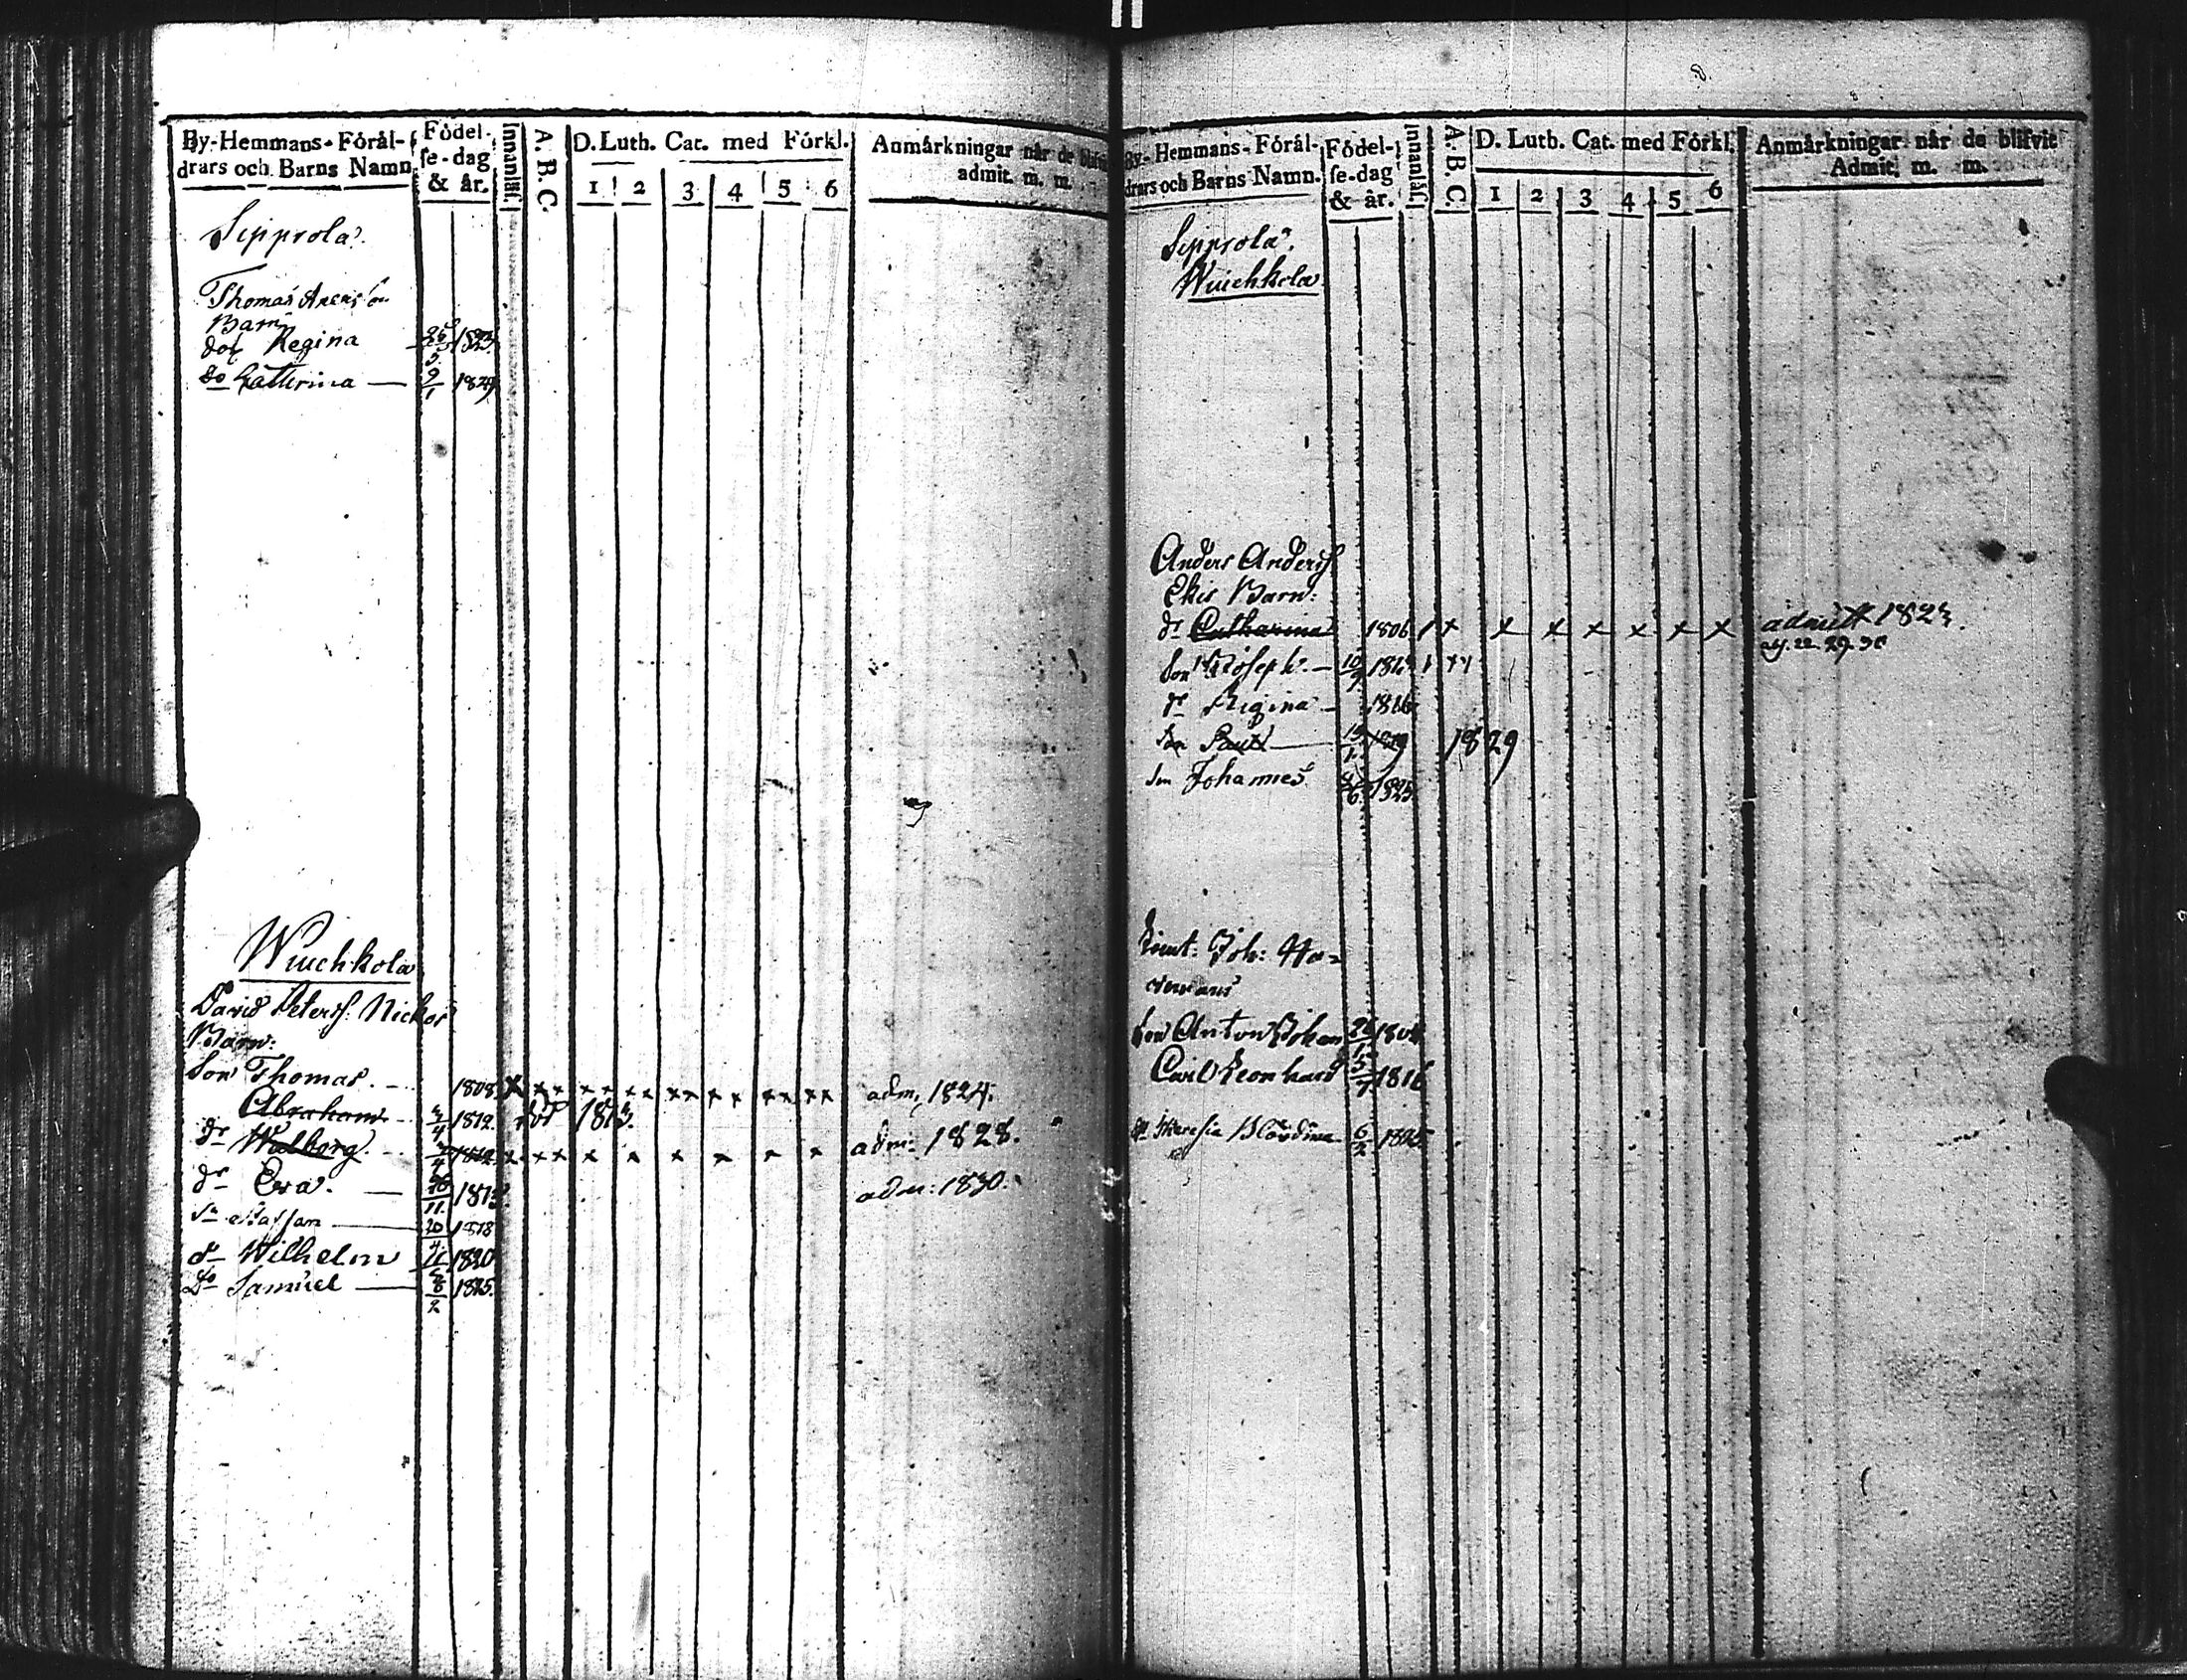 By-Hemmans-Förål-
drars och Barns Namn
Födel-
se-dag
& år.
Innanläs.
A. B. C.
D. Luth. Cat. med Förkl.
1 2 3 4 5 6
Anmårkningar når de blifvit
admit. m. m.
Sipprola.
Thomas
Barn
Regina 1823
do Catterina — 9/1 1829
Wiuchkola
David Peterss: Nickos
Barn:
Son Thomas. — 1808 x x x x x x x x x x x x x x x adm. 1824.
Abraham 1812. död 1813.
dr Walborg. 1812 x x x x x x x x x adm: 1828.
dr Eva. — 11 1813 adm: 1830.
Sn Staffan — 20/4 1818
dn Wilhelm 1820
Do Samuel — 8/2 1825.
By-Hemmans-Förål-
drars och Barns Namn.
Födel-
se-dag
& år.
Innanläs.
A. B. C.
D. Luth. Cat. med Förkl.
1 2 3 4 5 6
Anmårkningar når de blifvit
Admit. m. m.
Sipprola.
Wiuchkola
Anders Anderss
Ekis Barn:
dr Catharina 1806 / x x x x x x x admitt 1823.
29. 30
Son Joseph. — 10/9 181
dr Regina — 1816
Son Paul — 1819 1829
Sn Johannes 6 1825
Joh: Ha=
Son Anton Johan 26 180
Carl Leonhard 5/7 1816
6/2 1825